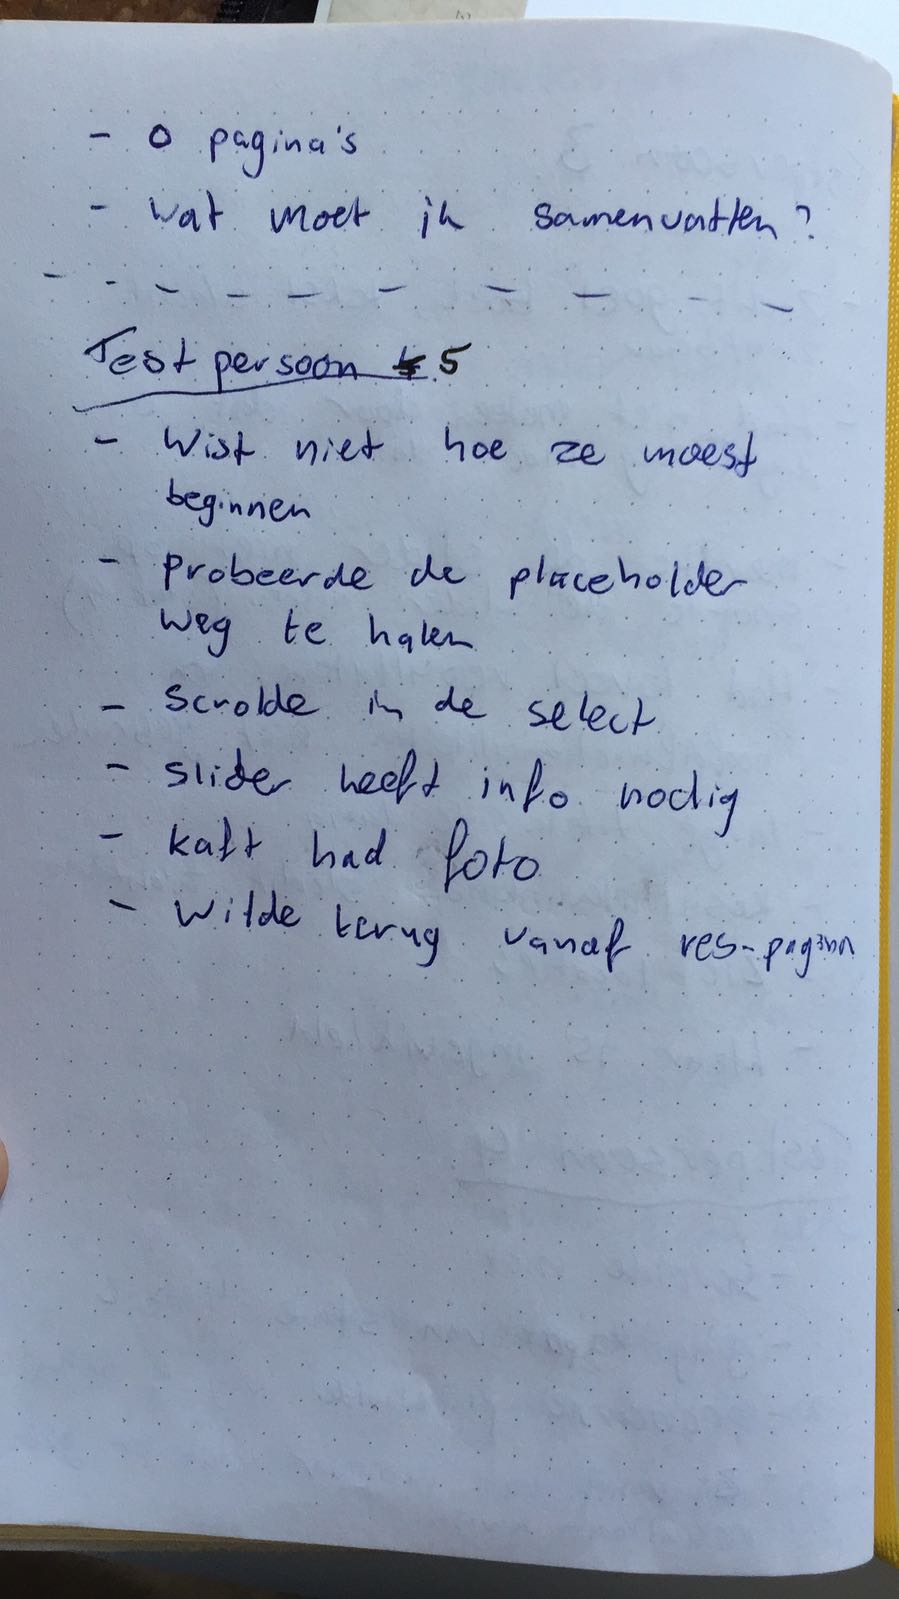 - 0 pagina's
- wat moet ik samenvatten?
Testpersoon 5
- Wist niet hoe ze moest
beginnen
- probeerde de placeholder
weg te halen
- scrolde in de select
- slider heeft info nodig
- kaft had foto
- wilde terug vanaf res-pagina